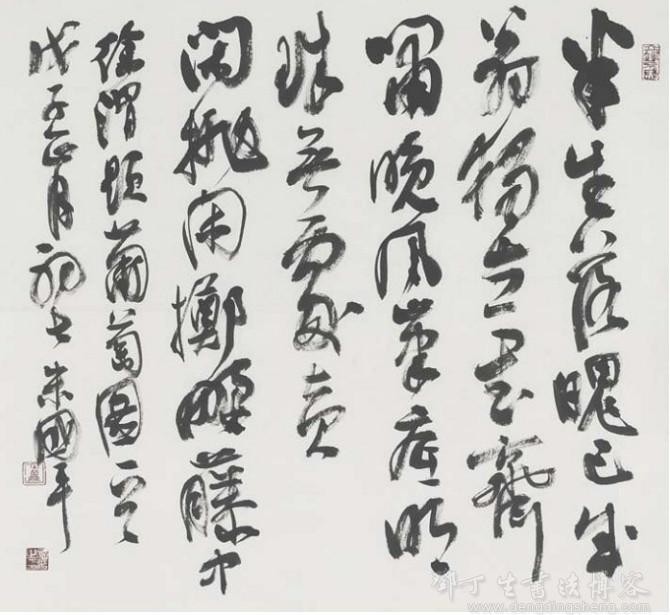 半生落魄已成
翁獨立书齋
嘯晚风筆底明
珠無處賣
闲拋闲擲野藤中
徐渭題葡萄圖
戊子正月初七朱國平
邓丁生書法博客
www.dengdingsheng.com